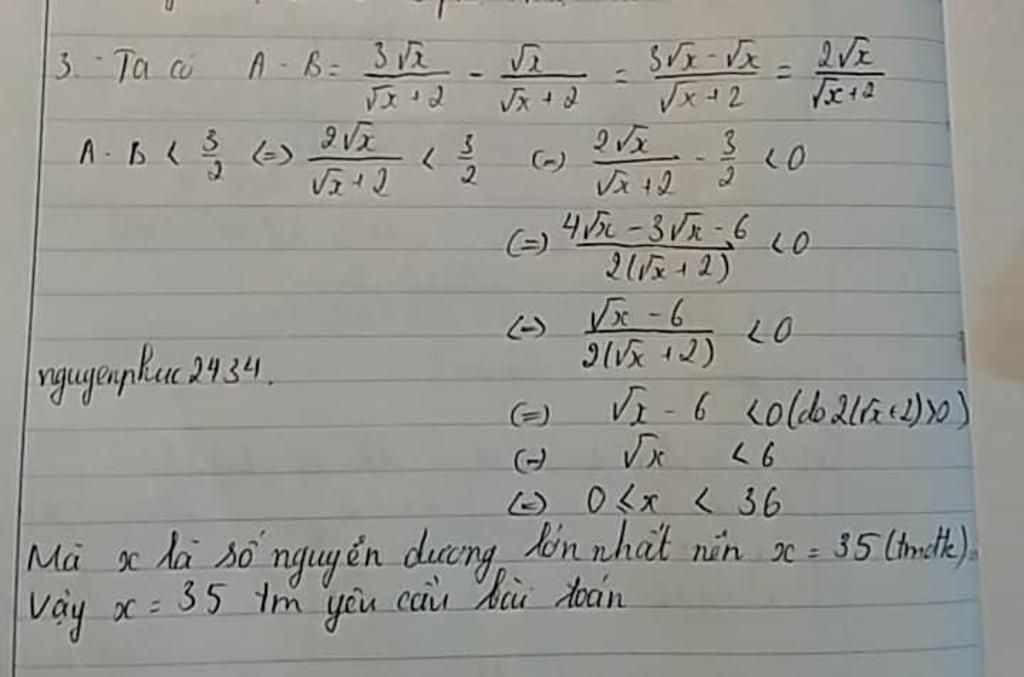 3. Ta có A - B = \frac{3\sqrt{x}}{\sqrt{x}+2} - \frac{\sqrt{x}}{\sqrt{x}+2} = \frac{3\sqrt{x}-\sqrt{x}}{\sqrt{x}+2} = \frac{2\sqrt{x}}{\sqrt{x}+2}
A - B < \frac{3}{2} (=) \frac{2\sqrt{x}}{\sqrt{x}+2} < \frac{3}{2} (=) \frac{2\sqrt{x}}{\sqrt{x}+2} - \frac{3}{2} < 0
(=) \frac{4\sqrt{x}-3\sqrt{x}-6}{2(\sqrt{x}+2)} < 0
(=) \frac{\sqrt{x}-6}{2(\sqrt{x}+2)} < 0
nguyenphuc2434.
(=) \sqrt{x} - 6 < 0 (do 2(\sqrt{x}+2)>0)
(=) \sqrt{x} < 6
(=) 0 < x < 36
Mà x là số nguyên dương lớn nhất nên x = 35 (tmđk).
Vậy x = 35 tm yêu cầu bài toán